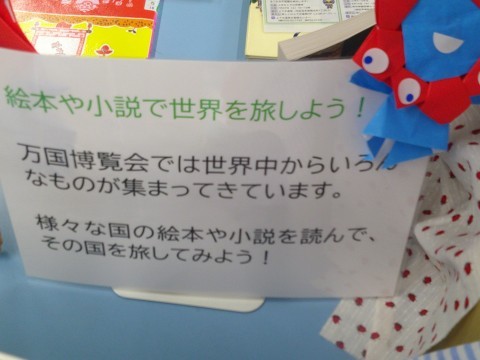 絵本や小説で世界を旅しよう！
万国博覧会では世界中からいろん
なものが集まってきています。
様々な国の絵本や小説を読んで、
その国を旅してみよう！